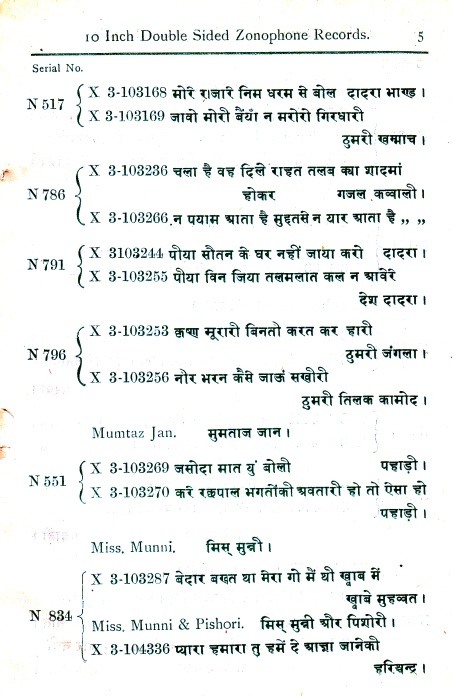 10 Inch Double Sided Zonophone Records. 5
Serial No.
N 517 X 3-103168 मोरे राजारे निम धरम से बोल दादरा भाण्ड।
X 3-103169 जावो मोरी बैंयाँ न मरोरो गिरधारी
ठुमरी खम्माच।
N 786 X 3-103236 चला है वह दिले राहत तलब क्या शादमां
होकर गजल कव्वाली।
X 3-103266 न पयाम आता है मुद्दतसे न यार आता है ,, ,,
N 791 X 3103244 पीया सौतन के घर नहीं जाया करो दादरा।
X 3-103255 पीया विन जिया तलमलात कल न आवेरे
देश दादरा।
N 796 X 3-103253 कृष्ण मूरारी बिनतो करत कर हारी
ठुमरी जंगला।
X 3-103256 नीर भरन कैसे जाऊं सखीरी
ठुमरी तिलक कामोद।
Mumtaz Jan. मुमताज जान।
N 551 X 3-103269 जसोदा मात युं बोली पहाड़ी।
X 3-103270 करे रक्षपाल भगतोंकी अवतारी हो तो ऐसा हो
पहाड़ी।
Miss. Munni. मिस् मुन्नी।
N 834 X 3-103287 बेदार बखत था मेरा गो मैं थी ख्वाब में
ख्वाबे मुहव्वत।
Miss. Munni & Pishori. मिस् मुन्नी और पिशोरी।
X 3-104336 प्यारा हमारा तु हमें दे आज्ञा जानेकी
हरिश्चन्द्र।